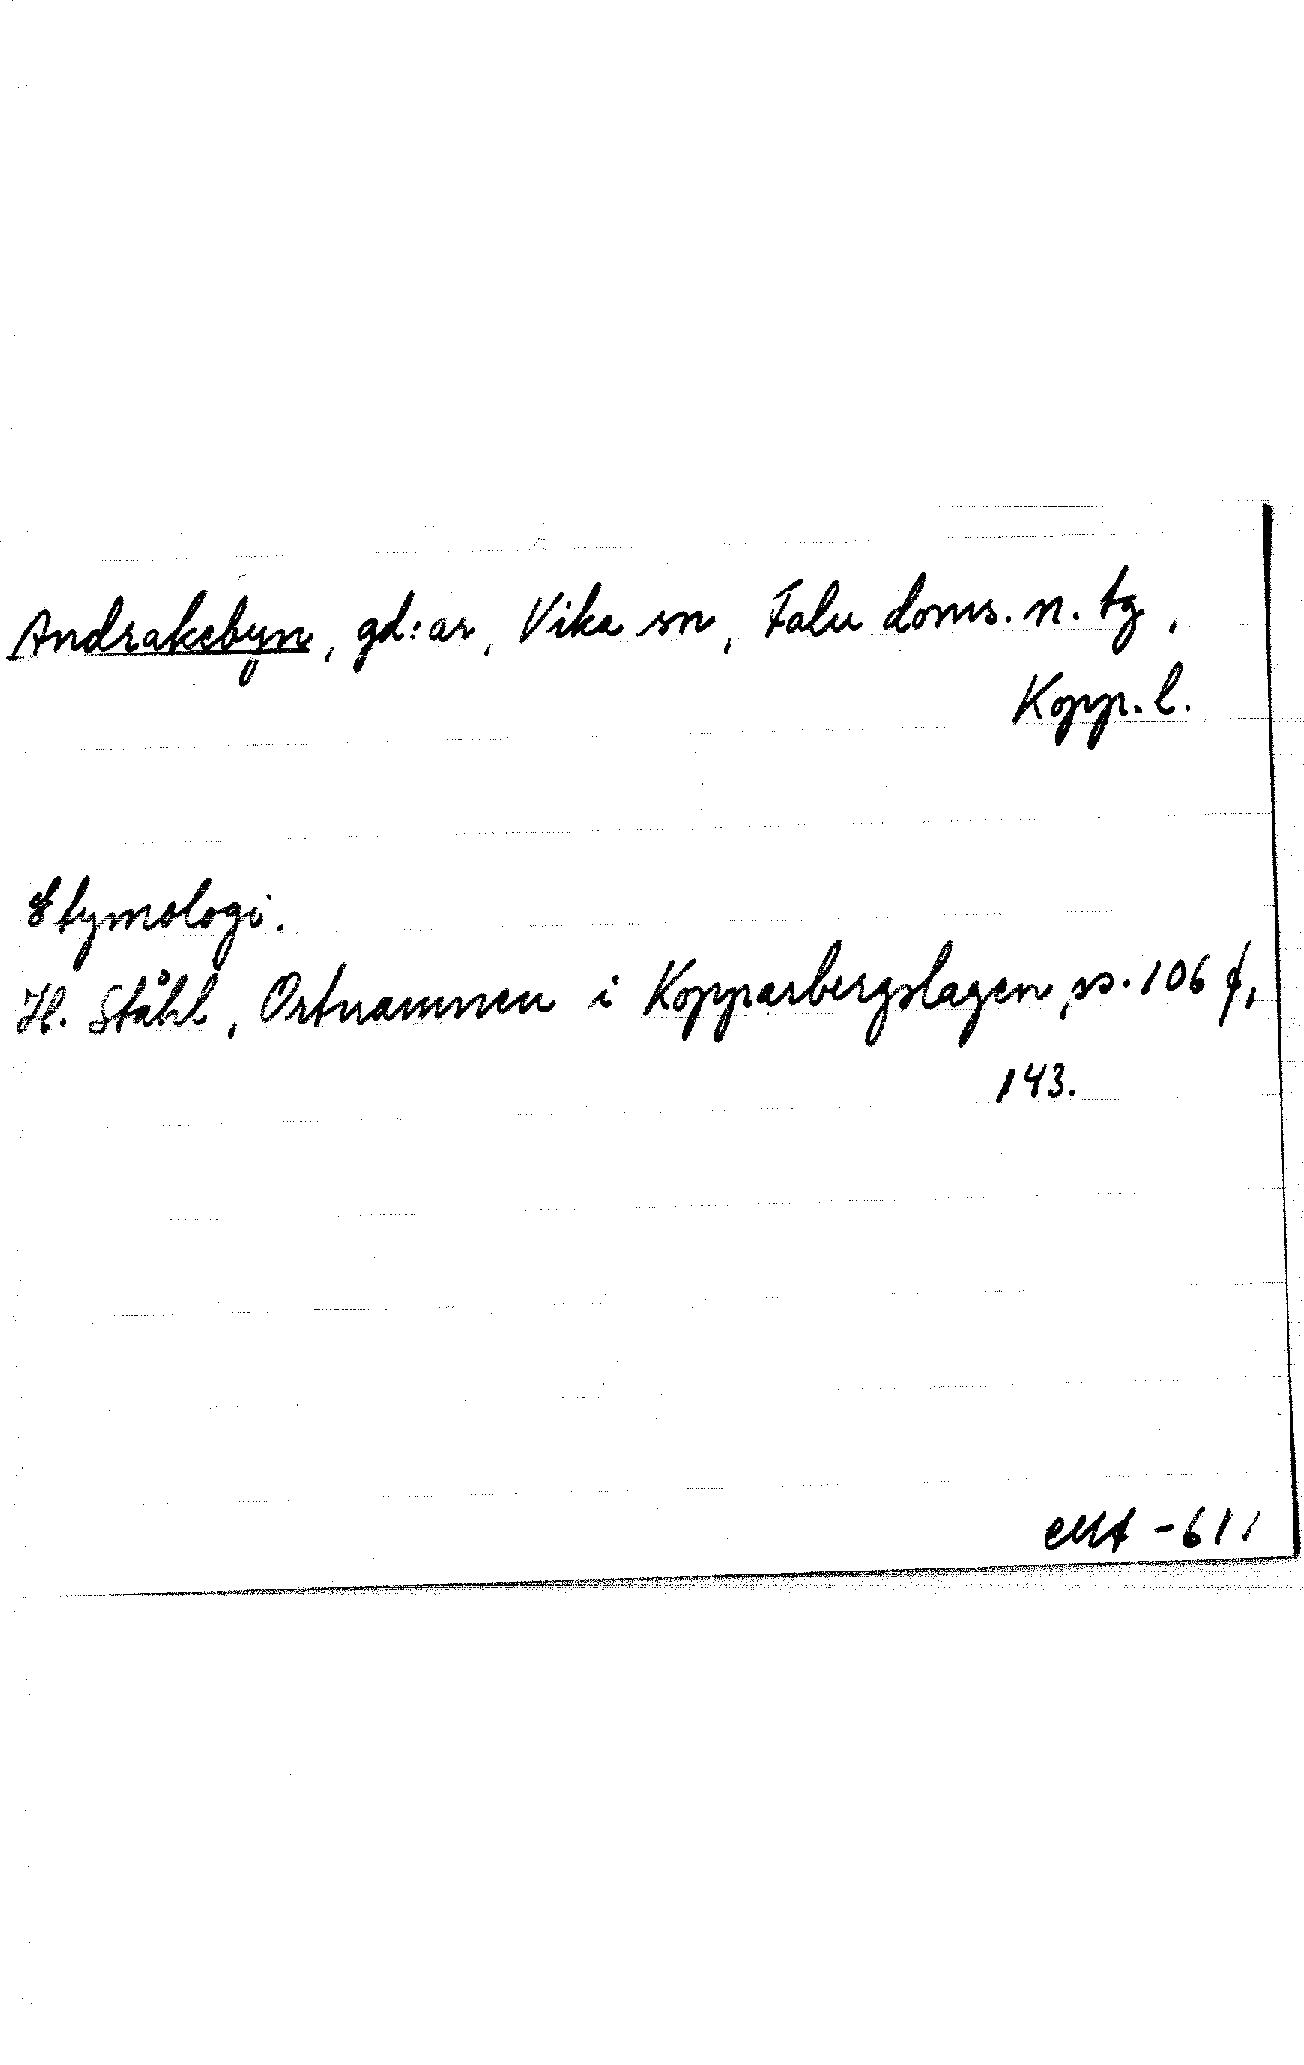 Andrakebyn, gd:ar, Vika sn, Falu doms. n. tg,
Kopp. l.
Etymologi.
H. Ståhl, Ortnamnen i Kopparbergslagen, ss. 106 f,
143.
MA -611